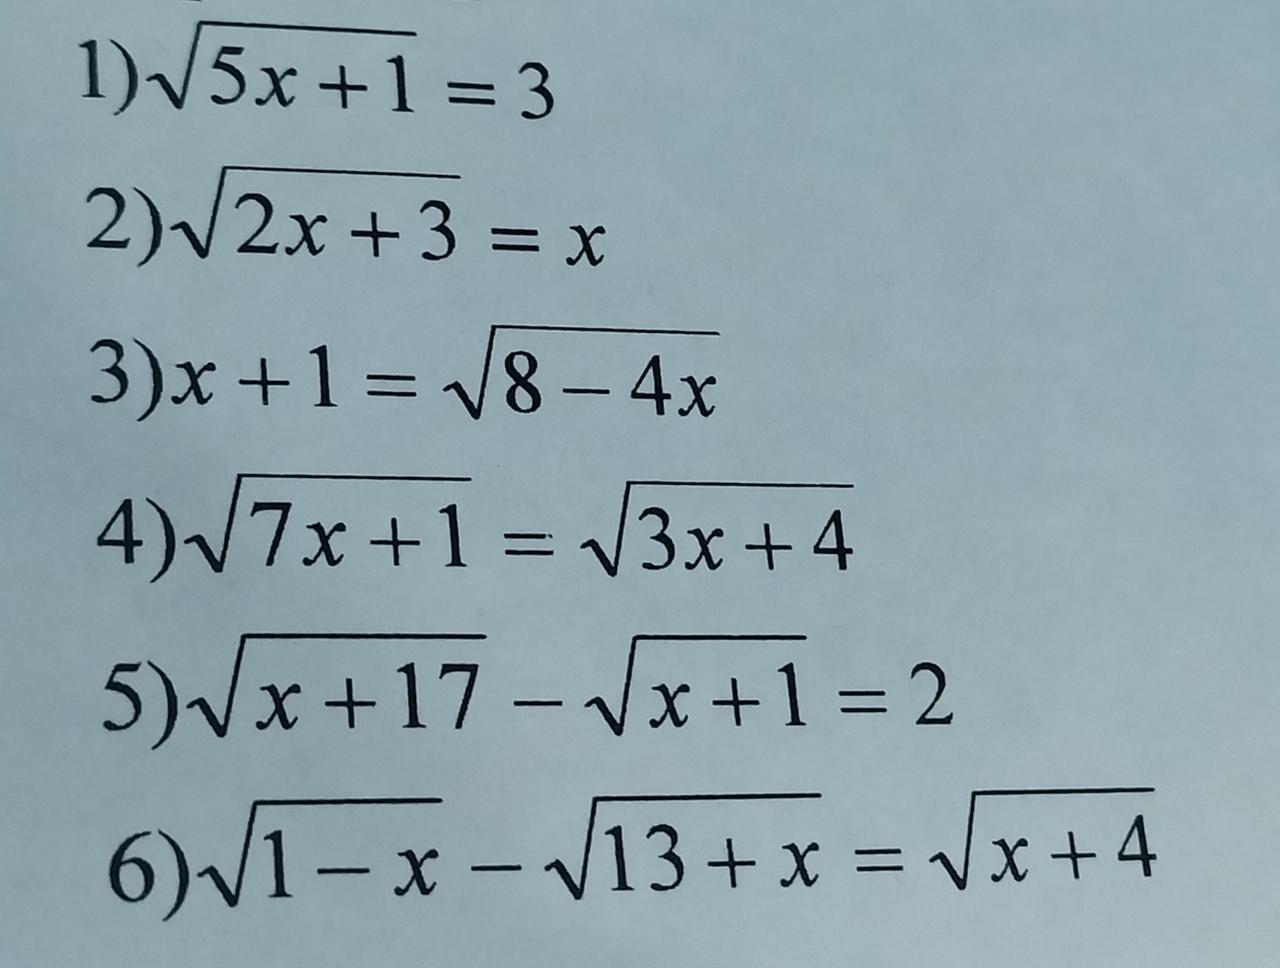 1)√(5x+1) = 3
2)√(2x+3) = x
3)x+1 = √(8−4x)
4)√(7x+1) = √(3x+4)
5)√(x+17) − √(x+1) = 2
6)√(1−x) − √(13+x) = √(x+4)